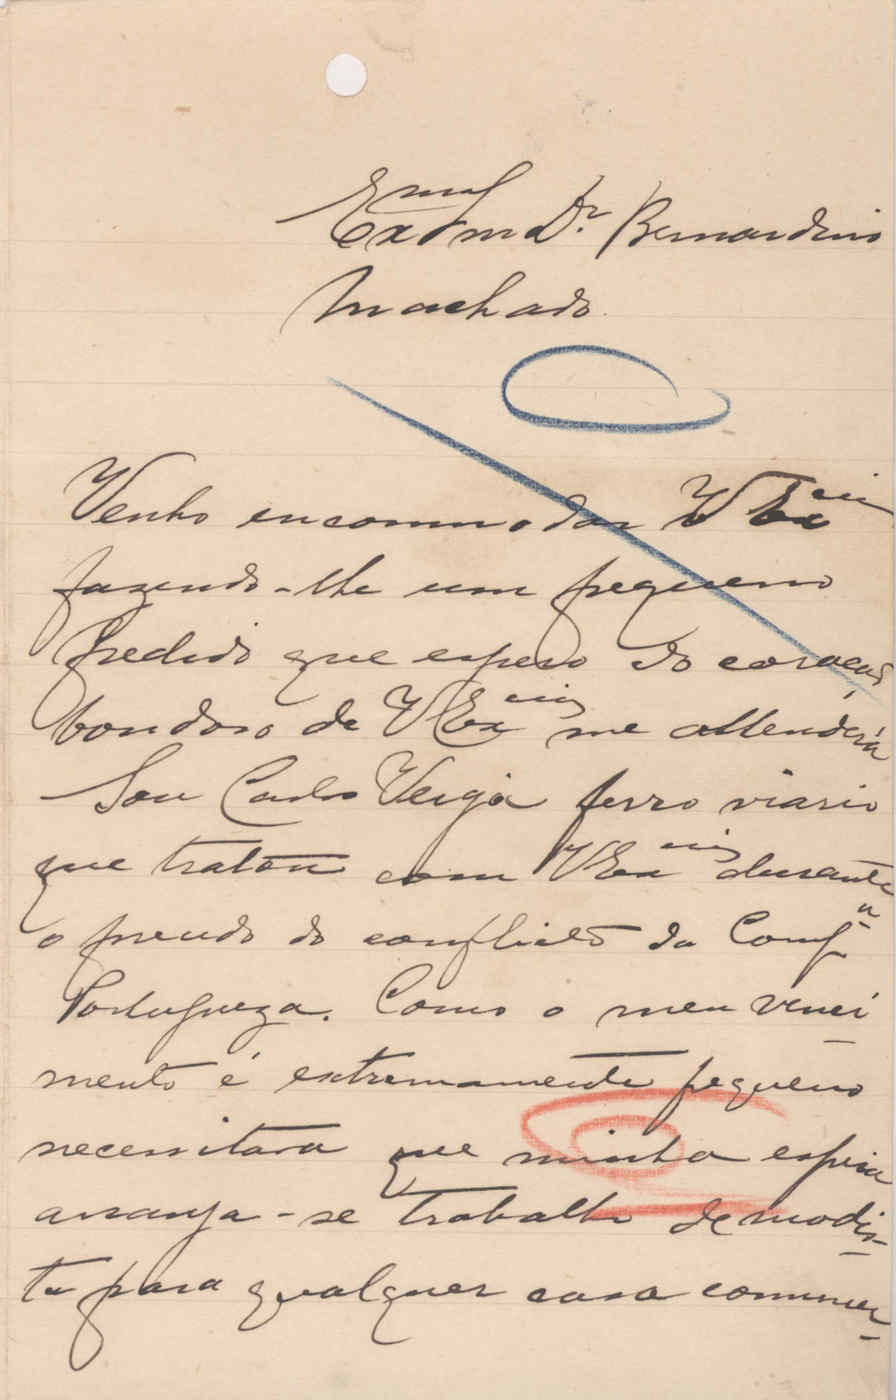 Exmo Snr Dr Bernardino
Machado.
Venho encommodar V Excia
fazendo-lhe um pequeno
pedido que espero do coração
bondoso de V Excia me attenderá
Sou Carlos Veiga ferro viario
que tratou com V Excia durante
o periudo do conflicto da Compa
Portugueza. Como o meu venci
mento é extremamente pequeno
necessitava que minha espoza
arranja-se trabalho de modis-
ta para qualquer casa commer-